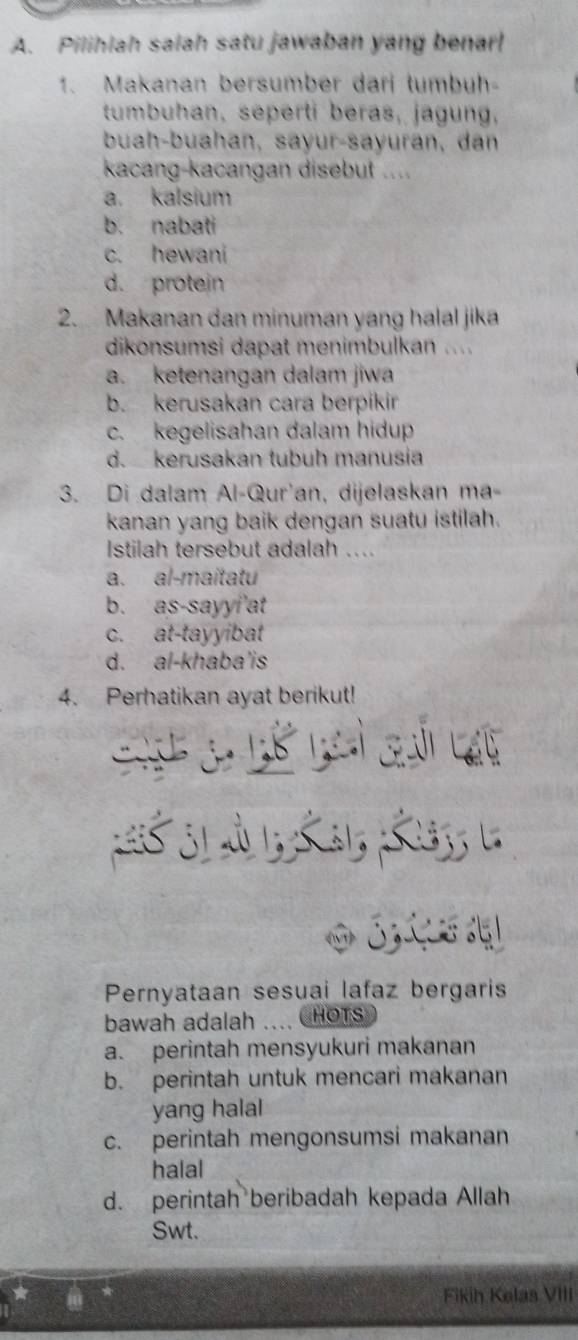 A. Pilihlah salah satu jawaban yang benar!
1. Makanan bersumber dari tumbuh-
tumbuhan, seperti beras, jagung,
buah-buahan, sayur-sayuran, dan
kacang-kacangan disebut ....
a. kalsium
b. nabati
c. hewani
d. protein
2. Makanan dan minuman yang halal jika
dikonsumsi dapat menimbulkan ....
a. ketenangan dalam jiwa
b. kerusakan cara berpikir
c. kegelisahan dalam hidup
d. kerusakan tubuh manusia
3. Di dalam Al-Qur'an, dijelaskan ma-
kanan yang baik dengan suatu istilah.
Istilah tersebut adalah ....
a. al-maitatu
b. as-sayyi'at
c. at-tayyibat
d. al-khaba'is
4. Perhatikan ayat berikut!
يٰٓاَيُّهَا الَّذِيْنَ اٰمَنُوْا كُلُوْا مِنْ طَيِّبٰتِ
مَا رَزَقْنٰكُمْ وَاشْكُرُوْا لِلّٰهِ اِنْ كُنْتُمْ
اِيَّاهُ تَعْبُدُوْنَ ﴿١٧٢﴾
Pernyataan sesuai lafaz bergaris
bawah adalah .... HOTS
a. perintah mensyukuri makanan
b. perintah untuk mencari makanan
yang halal
c. perintah mengonsumsi makanan
halal
d. perintah beribadah kepada Allah
Swt.
Fikih Kelas VIII